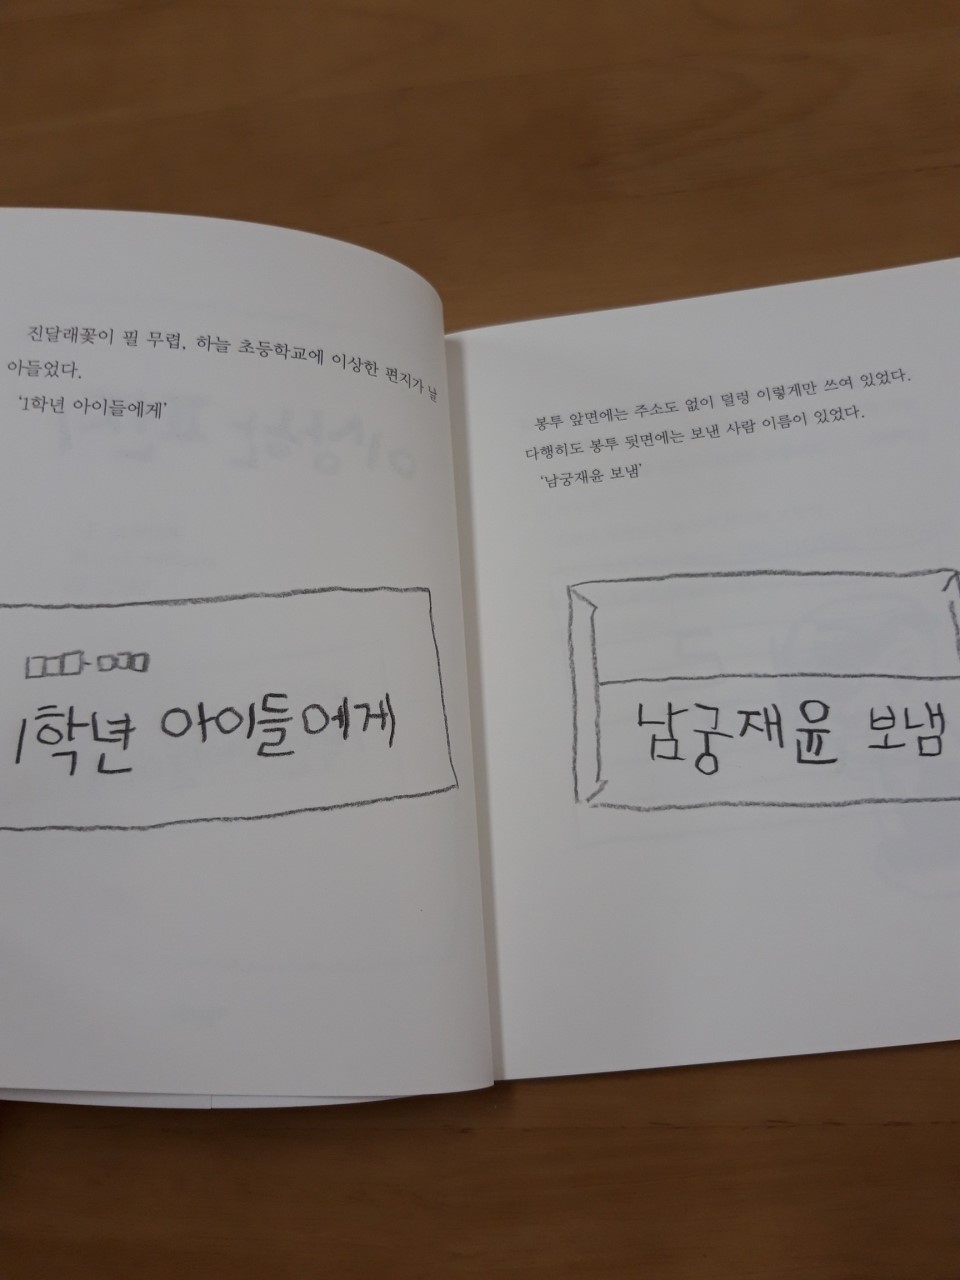 진달래꽃이 필 무렵, 하늘 초등학교에 이상한 편지가 날
아들었다.
‘1학년 아이들에게’
1학년 아이들에게
봉투 앞면에는 주소도 없이 덜렁 이렇게만 쓰여 있었다.
다행히도 봉투 뒷면에는 보낸 사람 이름이 있었다.
‘남궁재윤 보냄’
남궁재윤 보냄